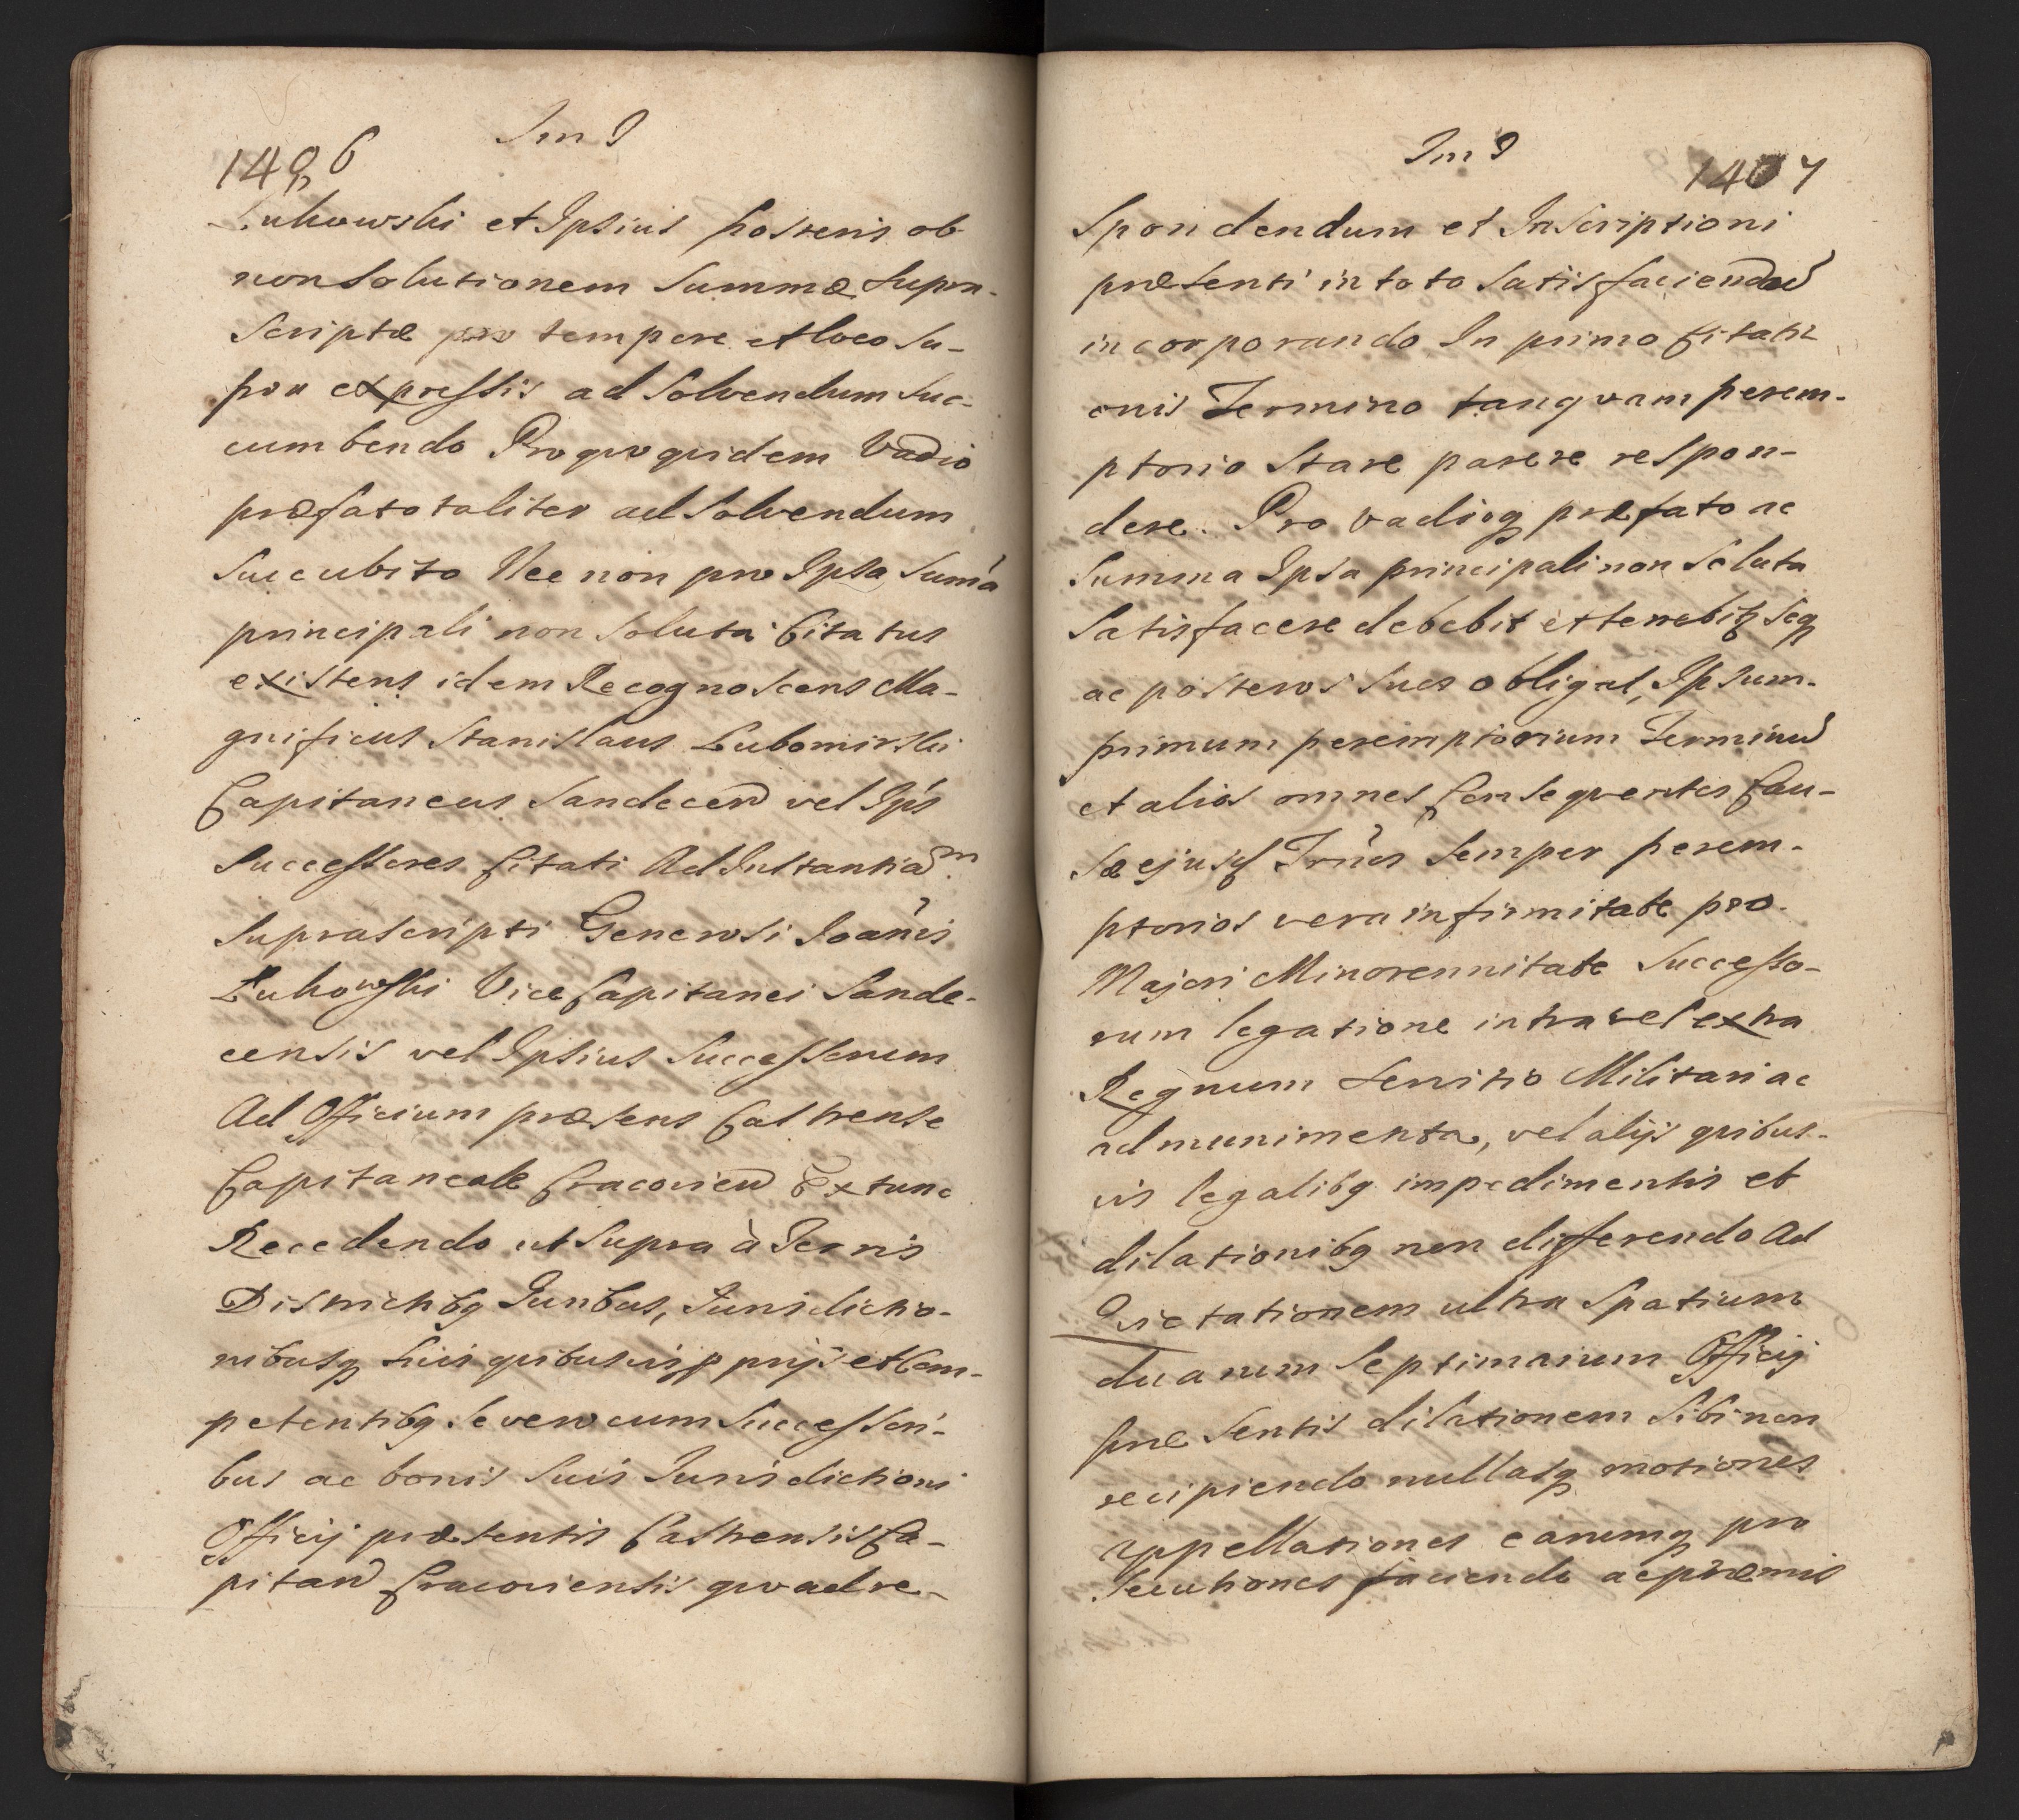 1406
Im I
Lukowski et Ipsius Posteris ob
non Solutionem Summæ Supra-
Scriptæ pro tempore et loco Su-
pra expressis ad Solvendum Suc-
cumbendo Pro quo quidem Vadio
præfato taliter ad Solvendum
Succubito Nec non pro Ipsa Suma
principali non Soluta Citatus
existens idem Recognoscens Ma-
gnificus Stanislaus Lubomirski
Capitaneus Sandecen vel Ips
Successores Citati Ad Instantiam
Suprascripti Generosi Joanis
Lukowski Vice Capitanei Sande-
censis vel Ipsius Successorum
Ad Officium præsens Castrense
Capitaneale Cracovien Extunc
Recedendo ut Supra à Terris
Districtibq Juribus, Jurisdictio-
nibusq Suis quibusvis pprijs et Com-
petentibq Se vero cum Successori-
bus ac bonis Suis Jurisdictioni
Officij præsentis Castrensis Ca-
pitan Cracoviensis quo ad re-
Im I
1407
Spondendum et Inscriptioni
præsenti in toto Satisfaciendu
incorporando In primo Citati
onis Termino tanqvam perem-
ptorio Stare parere respon-
dere. Pro vadioq præfato ac
Summa Ipsa principali non Soluta
Satisfacere debebit et tenebitq Seq
ac posteros Suos obligat, Ipsum.
primum peremptorium Terminu
et alios omnes Consequentes Cau-
sæ ejusd Trnos Semper perem-
ptorios vera infirmitate pro
Majori Minorennitate Successo-
rum legatione intra vel extra
Regnum Servitio Militari ac
ad munimenta, vel alijs quibus-
vis legalibq impedimentis et
dilationibq non differendo Ad
Qictationem ultra Spatium
duarum Septimanum Officij
præsentis dilationem Sibi non
recipiendo nullasq motiones
appellationes earumq pro
Secutiones faciendo ac præmis